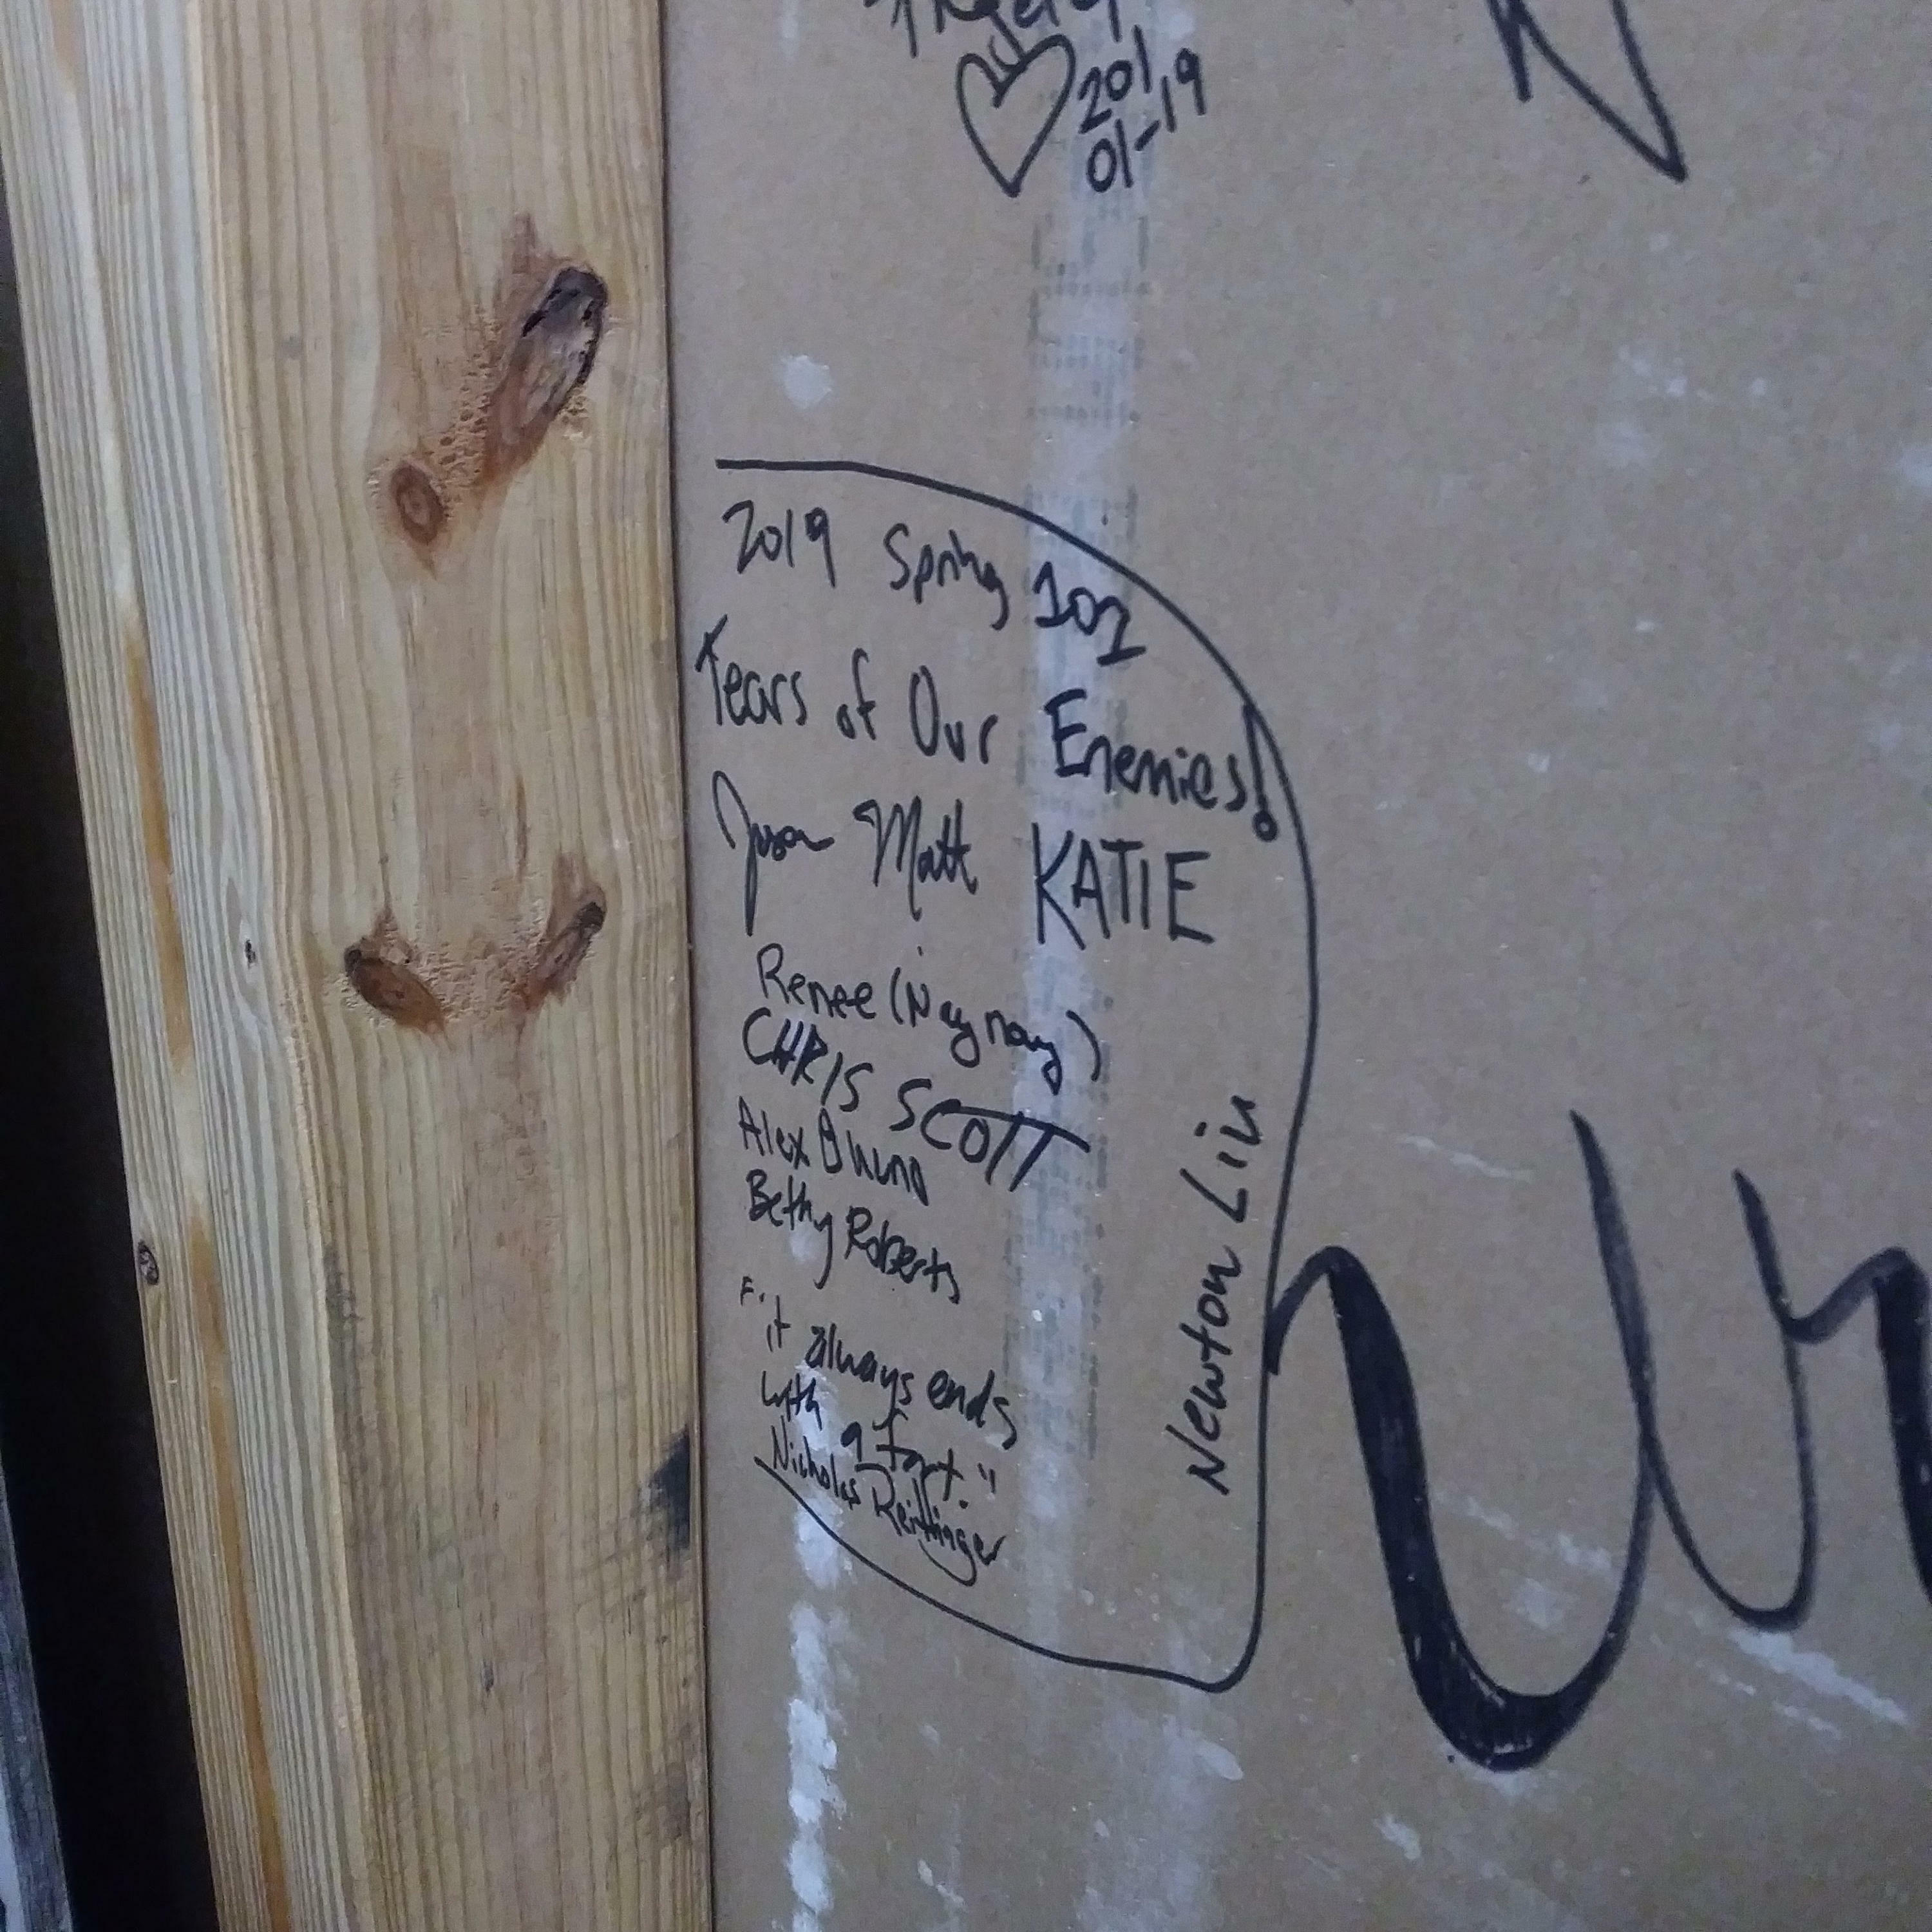 201
01-19
2019 Spring 102
Tears of Our Enemies!
Jason Matt KATIE
Renee (Naynay)
CHRIS SCOTT
Alex
Bethy Roberts
"it always ends
with a fart."
Nicholas Reittinger
Newton Liu